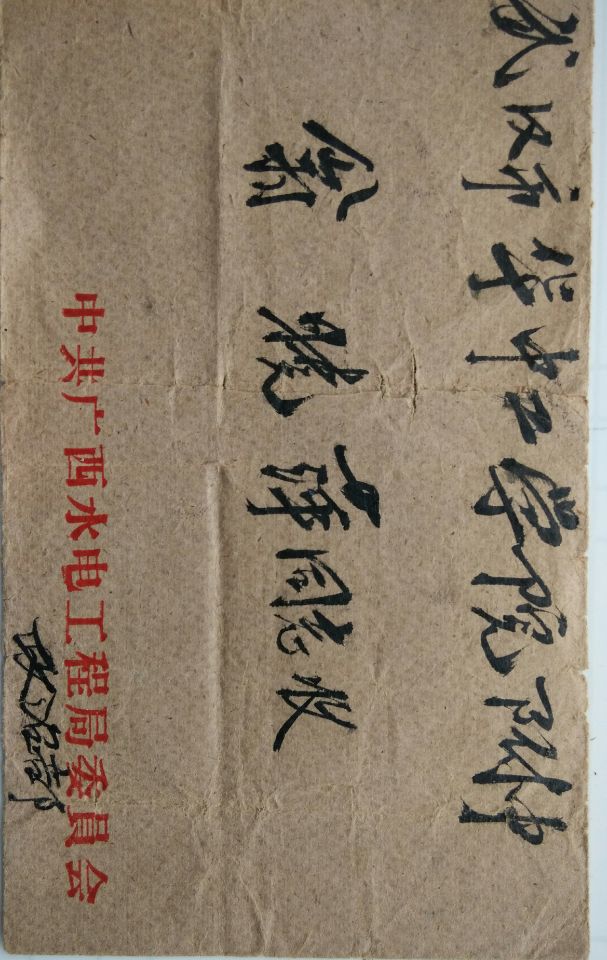 武汉市华中工学院附中
翁晓萍同志收
中共广西水电工程局委員会
政治部